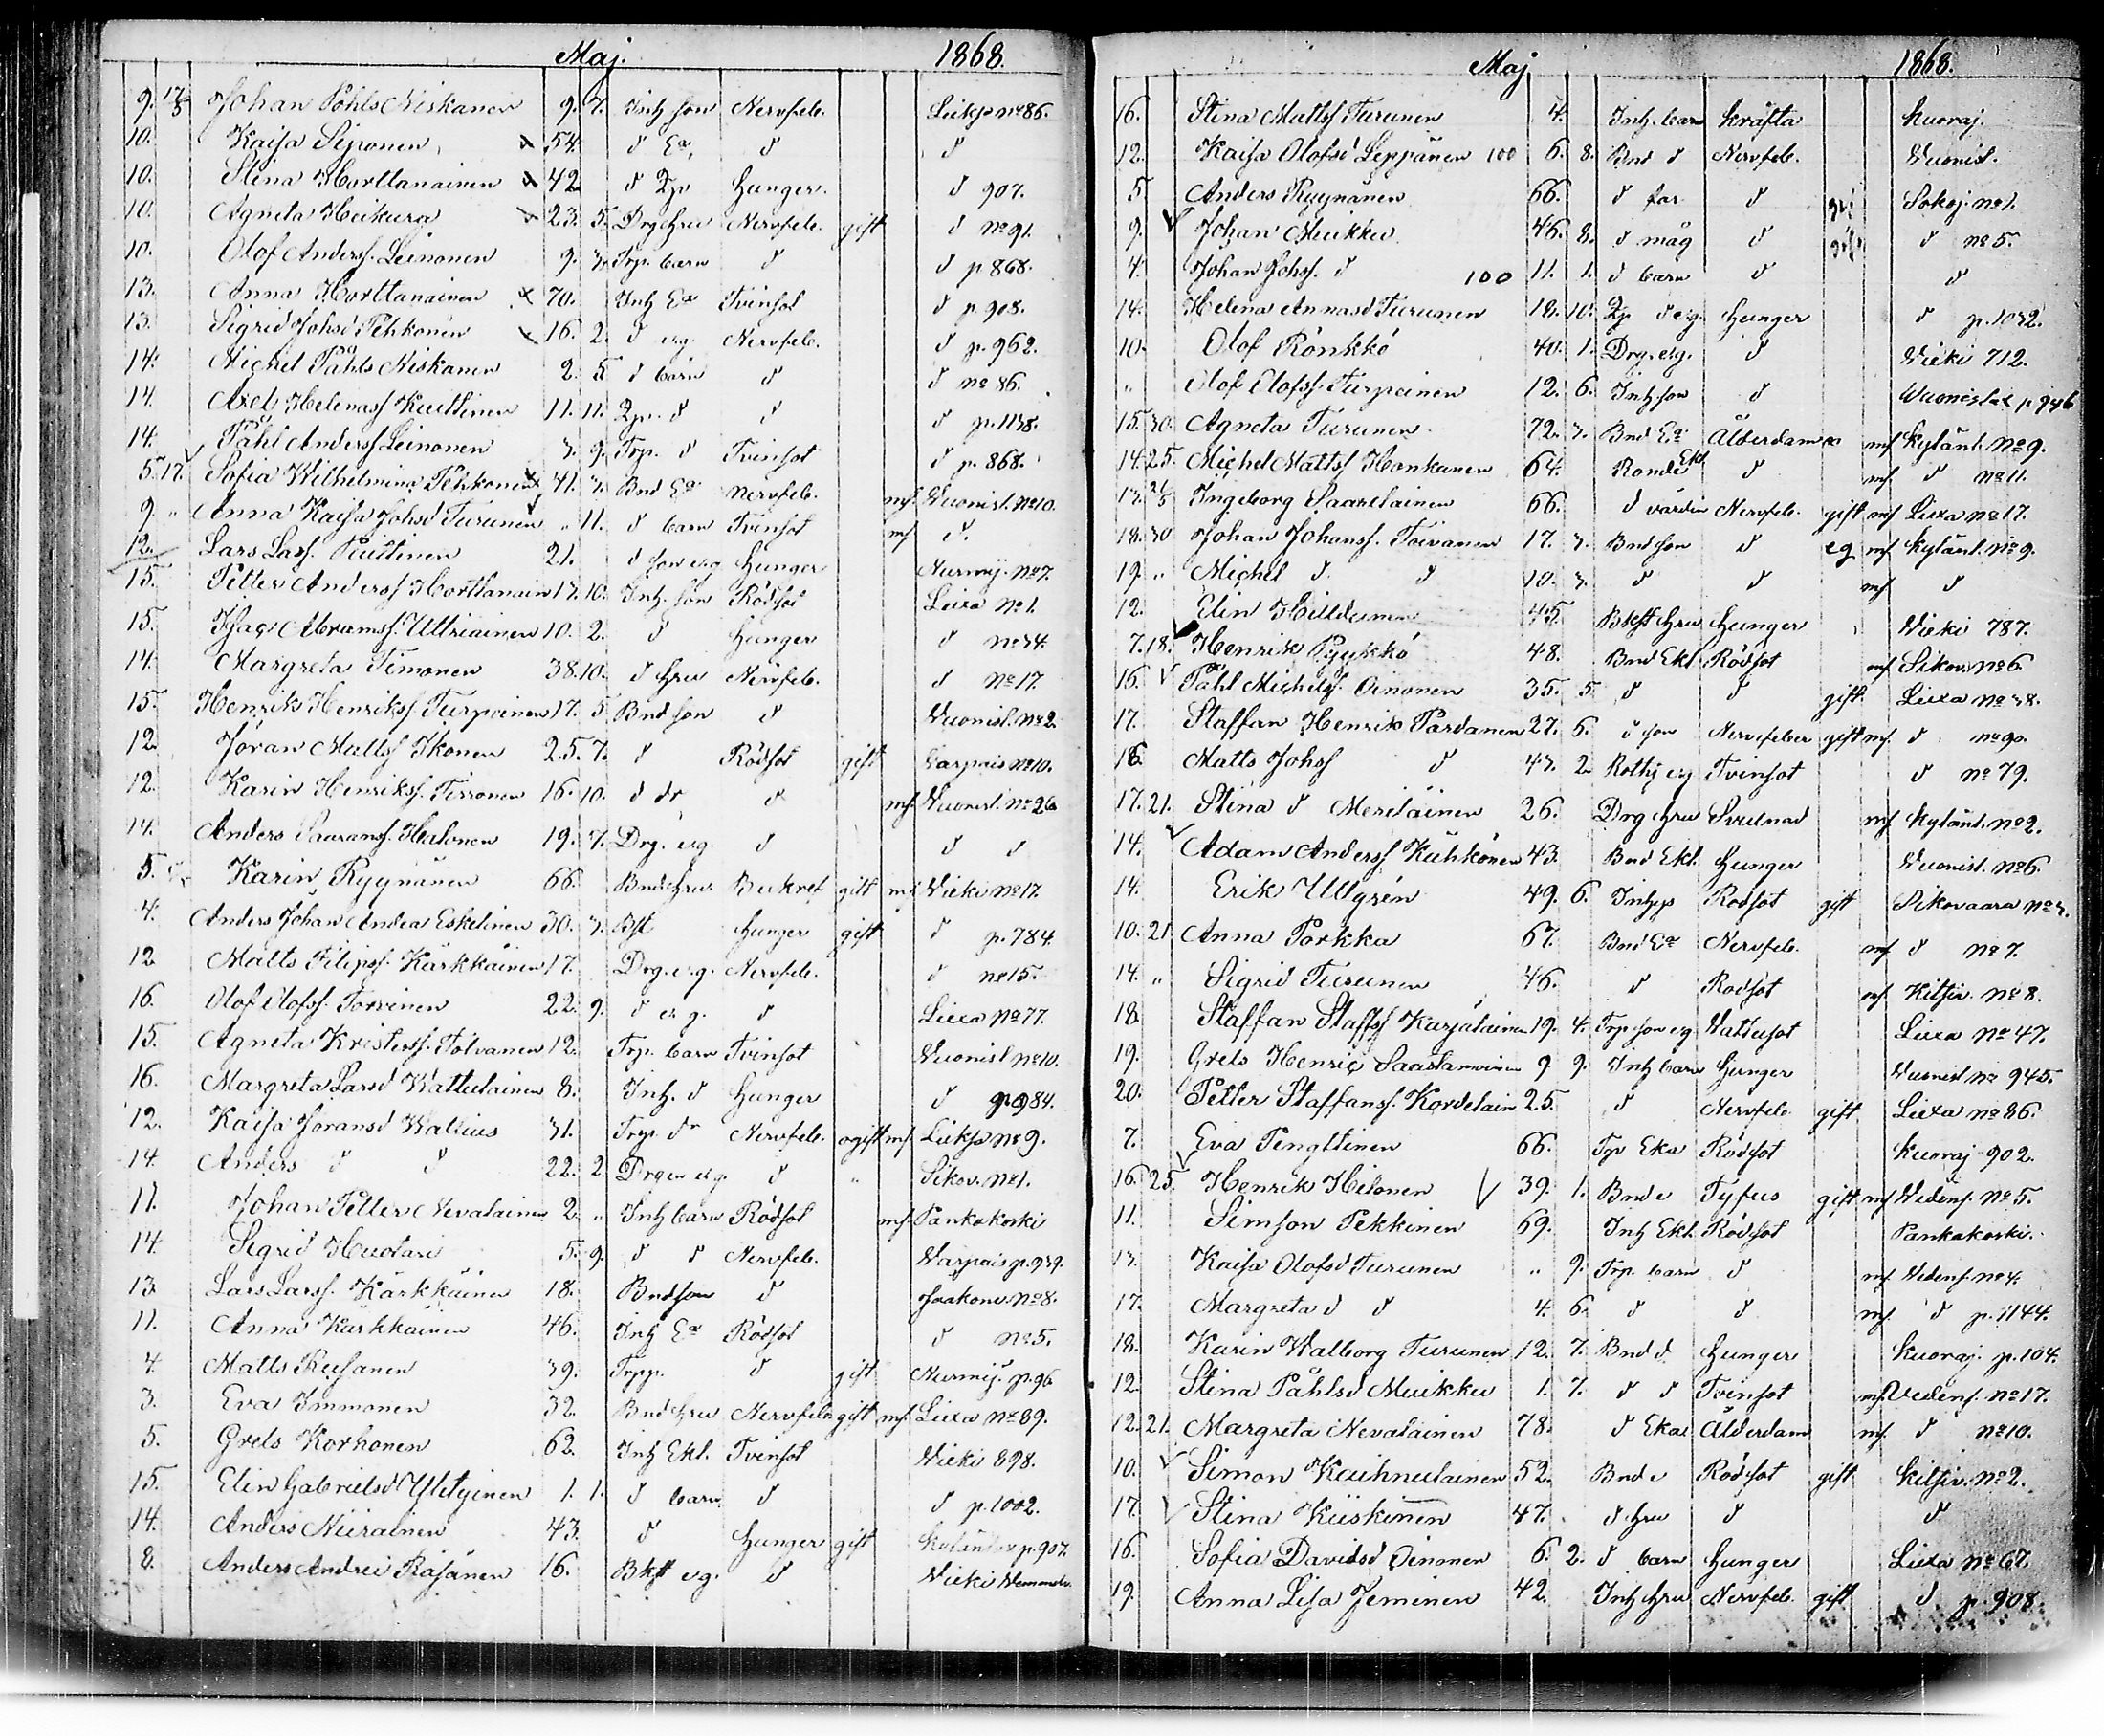 Maj. 1868.
9. 17/5 Johan Påhls Niskanen 9. 7. Inh son Nervfeb. Lieksa no 86.
10. Kaisa Sijronen x 54. d Ea d d
10. Stina Horttanainen x 42 d Qp hunger. d 907.
10. Agneta Heikura x 23. 5. Drg hru Nervfeb. gift d no 91.
10. Olof Anderss. Leinonen 9. 3. Trp. barn d d p 868.
13. Anna Horttanainen x 70. Inh Ea Tvinsot d p. 908.
13. Sigrid Johsd Pehkonen x 16. 2. d eg. Nervfeb. d p. 962.
14. Michel Påhls Niskanen 2. 5 d barn d d no 86.
14. Axel Helenass Kuittinen 11. 11. Qp. d d d p. 1138.
14. Påhl Anderss Leinonen 3. 9. Trp. d Tvinsot d p. 868.
5. 17. Sofia Wilhelmina Pehkonen x 41. 3. Bnd Ea Nervfeb. mf. Wuonisl. No 10.
9. " Anna Kaisa Johsd Turunen " 11. d barn Tvinsot mf d.
12. Lars Lass. Kuittinen 21. d son eg hunger Nurmij. No 7.
15. Petter Anderss Horttanain 13. 10. Inh. son Rödsot Liexa No 1.
15. Isac Abramss. Ultriainen 10. 2. d hunger d no 34.
14. Margreta Timonen 38. 10. d hru Nervfeb. d no 17.
15. Henrik Henrikss. Turpeinen 17. 5 Bnd son d Wuonisl. no 2.
12. Jöran Mattss Ikonen 25. 7. d Rödsot gift Varpais no 10.
12. Karin Henrikss. Tirronen 16. 10. d dr d mf. Wuonisl. no 26
14. Anders Paavanss. Halonen 19. 7. Drg. eg. d d d
5. Karin Ryynänen 66. Bnd hru Benkref gift mf Vieki no 17.
4. Anders Johan Andrea Eskelinen 30. 3. Bst hunger gift d p. 784.
12 Matts Filipss. Kärkkäinen 17. Drg. eg. Nervfeb. d no 15.
16. Olof Olofss. Torvinen 22. 9. d eg. d Liexa No 77.
15. Agneta Kristerss. Tolvanen 12. Trp. barn Tvinsot Wuonisl no 10.
16. Margreta Larsd Wattulainen 8. Inh. d hunger d p. 984.
12. Kaisa Joransd Wallius 31. Trp. dr Nervfeb. ogift mf. Lieksa no 9.
14. Anders d d 22. 2. Drgen eg. d " Sikov. No 1.
11. Johan Petter Nevalainen 2. " Inh barn Rödsot mf. Pankakoski
14. Sigrid Huotari 5. 9. d d Nervfeb. Warpais p. 939.
13. Lars Larss. Kärkkäinen 18. Bndson d Jaakonv. No 8.
11. Anna Kärkkäinen 46. Inh Ea Rödsot d no 5.
4. Matts Rusanen 39. Trpp. d gift Nurmij. p. 96
3. Eva Immonen 32. Bnd hru Nervfeb gift mf. Liexa No 89.
5. Grels Korhonen 62. Inh Ekl. Tvinsot Vieki 898.
15. Elin Gabrielsd Yletyinen 1. 1. d barn d d p. 1002.
14. Anders Niirainen 43. d hunger gift p. 907.
8. Anders Andrei Räsänen 16. Bkst eg. d Vieki
Maj 1868.
16. Stina Mattss Turunen 4. Inh. barn kräfta Kuoraj.
12. Kaisa Olofsd Leppänen 100 6. 8. Bnd d Nervfeb. Wuonisl.
5 Anders Ryynänen 66. d far d gift Sokoj. no 1.
9. Johan Muikku 46. 8. d måg d gift d no 5.
4. Johan Johss. d 100 11. 1. d barn d d
14. Helena Annasd Turunen 18. 10. Qp d eg. hunger d p. 1032.
10. Olof Rönkkö 40. 1. Drg. eg. d Vieki 712.
" Olof Olofss. Turpeinen 12. 6. Inh son d Wuonislax p 946
15. 30. Agneta Turunen 72. 3. Bnd Ea Ålderdom mf Kylänl. No 9.
14. 25. Michel Mattss Honkanen 64. Bonde Ekl d mf. d no 11.
13. 21/5 Ingeborg Saarelainen 66. d värdin Nervfeb. gift mf Liexa no 17.
18. 30 Johan Johanss. Toivanen 17. 3. Bnd son d eg mf. Kylänl. no 9.
19. " Michel d d 10. 3. d d mf d
12. Elin Hilldunen 45. Bkst hru hunger Vieki 787.
7. 18. Henrik Pyykkö 48. Bnd Ekl Rödsot mf Sikov. no 6
16. Påhl Michelss. Oinonen 35. 5. d d gift Liexa no 38.
17. Staffan Henriks Pardanen 27. 6. d son Nervfeber gift mf. d no 90.
16. Matts Johss d 43. 2. Rothj eg Tvinsot d no 79.
17. 21. Stina d Meriläinen 26. Drg hru Svulnad mf Kylänl. no 2.
14. Adam Anderss Kuhkönen 43. Bnd Ekl. hunger Wuonisl. no 6.
14. Erik Ullgrén 49. 6. Inhys Rödsot gift Sikovaara No 3.
10. 21 Anna Porkka 67. Bnd Ea Nervfeb. mf d no 7.
14. " Sigrid Turunen 46. d Rödsot mf. Kitsiv. no 8.
18. Staffan Staffss Karjalainen 19. 4. Trp son eg Vattusot Liexa No 47.
19. Grels Henric Saastamoinen 9 9. Inh barn hunger Wuonisl no 945.
20. Petter Staffanss. Kordelain 25. d Nervfeb. gift Liexa no 86.
7. Eva Pengttinen 66. Trp Eka Rödsot Kuoraj 902.
16. 25. Henrik Hilonen 39. 1. Bnde Tyfus gift mf Videns. No 5.
11. Simson Pekkinen 69. Inh Ekl. Rödsot Pankakoski.
13. Kaisa Olofsd Turunen " 9. Trp. barn d mf. Videns. no 4.
17. Margreta d d 4. 6. d d mf. d p. 1144.
18. Karin Walborg Turunen 12. 7. Bnd d. hunger Kuoraj. p. 104.
12. Stina Påhlsd Muikku 1. 7. d d Tvinsot mf. Videns. no 17.
12. 21. Margreta Nevalainen 78. d Eka Ålderdom mf. d no 10.
10. Simon Kauhnulainen 52. Bnde Rödsot gift Kitsiv. no 2.
17. Stina Kiiskinen 47. d hru d d
16. Sofia Davidsd Oinonen 6. 2. d barn hunger Liexa no 67.
19. Anna Lisa Jeminen 42. Inh hru Nervfeb. gift d p. 908.